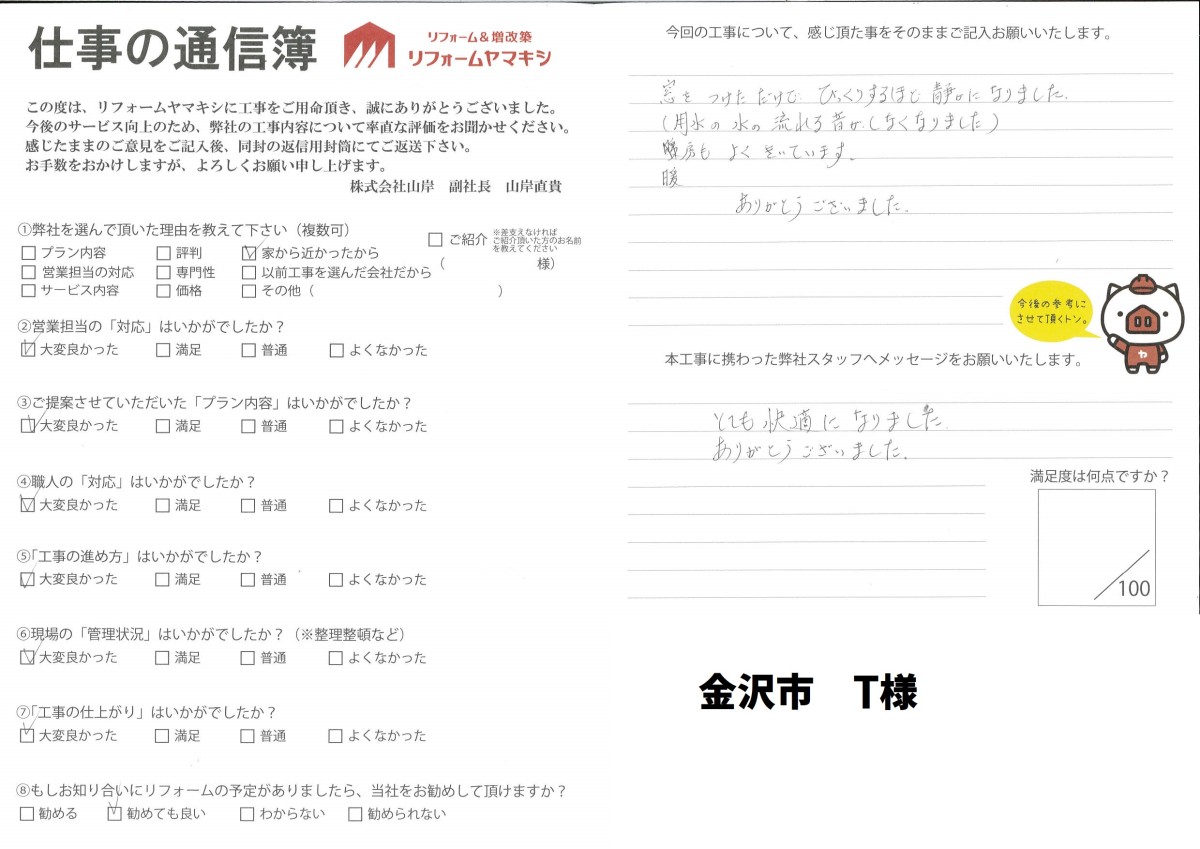 仕事の通信簿
リフォーム&増改築
リフォームヤマキシ
この度は、リフォームヤマキシに工事をご用命頂き、誠にありがとうございました。
今後のサービス向上のため、弊社の工事内容について率直な評価をお聞かせください。
感じたままのご意見をご記入後、同封の返信用封筒にてご返送下さい。
お手数をおかけしますが、よろしくお願い申し上げます。
株式会社山岸　副社長　山岸直貴
①弊社を選んで頂いた理由を教えて下さい（複数可）
□ プラン内容　□ 評判　☑ 家から近かったから　□ ご紹介 ※差支えなければ
ご紹介頂いた方のお名前
を教えてください
□ 営業担当の対応　□ 専門性　□ 以前工事を選んだ会社だから （　　　様）
□ サービス内容　□ 価格　□ その他（　　　）
②営業担当の「対応」はいかがでしたか？
☑ 大変良かった　□ 満足　□ 普通　□ よくなかった
③ご提案させていただいた「プラン内容」はいかがでしたか？
☑ 大変良かった　□ 満足　□ 普通　□ よくなかった
④職人の「対応」はいかがでしたか？
☑ 大変良かった　□ 満足　□ 普通　□ よくなかった
⑤「工事の進め方」はいかがでしたか？
☑ 大変良かった　□ 満足　□ 普通　□ よくなかった
⑥現場の「管理状況」はいかがでしたか？（※整理整頓など）
☑ 大変良かった　□ 満足　□ 普通　□ よくなかった
⑦「工事の仕上がり」はいかがでしたか？
☑ 大変良かった　□ 満足　□ 普通　□ よくなかった
⑧もしお知り合いにリフォームの予定がありましたら、当社をお勧めして頂けますか？
□ 勧める　☑ 勧めても良い　□ わからない　□ 勧められない
今回の工事について、感じ頂た事をそのままご記入お願いいたします。
窓を つけた だけで びっくりするほど 静かに なりました.
(用水の 水の 流れる 音が しなくなりました)
房も よく きいています.
暖
ありがとう ございました.
今後の参考に
させて頂くトン。
ヤ
本工事に携わった弊社スタッフへメッセージをお願いいたします。
とても 快適に なりました.
ありがとう ございました.
満足度は何点ですか？
/100
金沢市　T様